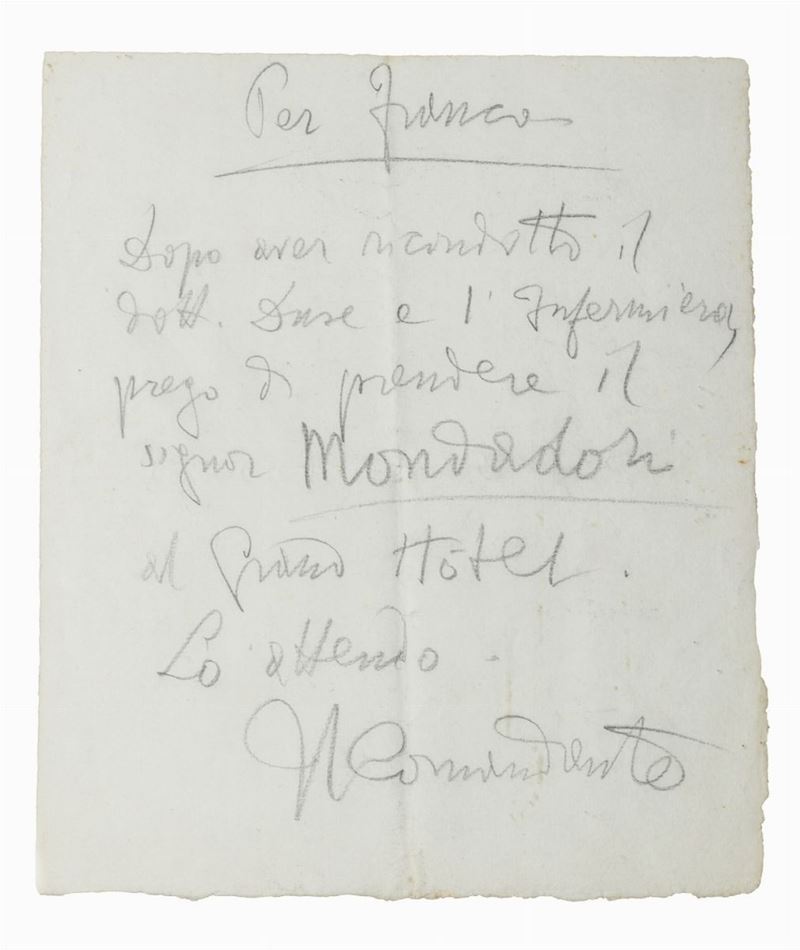 Per Franco
Dopo aver ricondotto il
dott. Duse e l'Infermiera,
prego di prendere il
signor Mondadori
al Grand Hotel.
Lo attendo.
Il Comandante